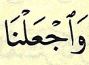 وَٱجْعَلْنَا